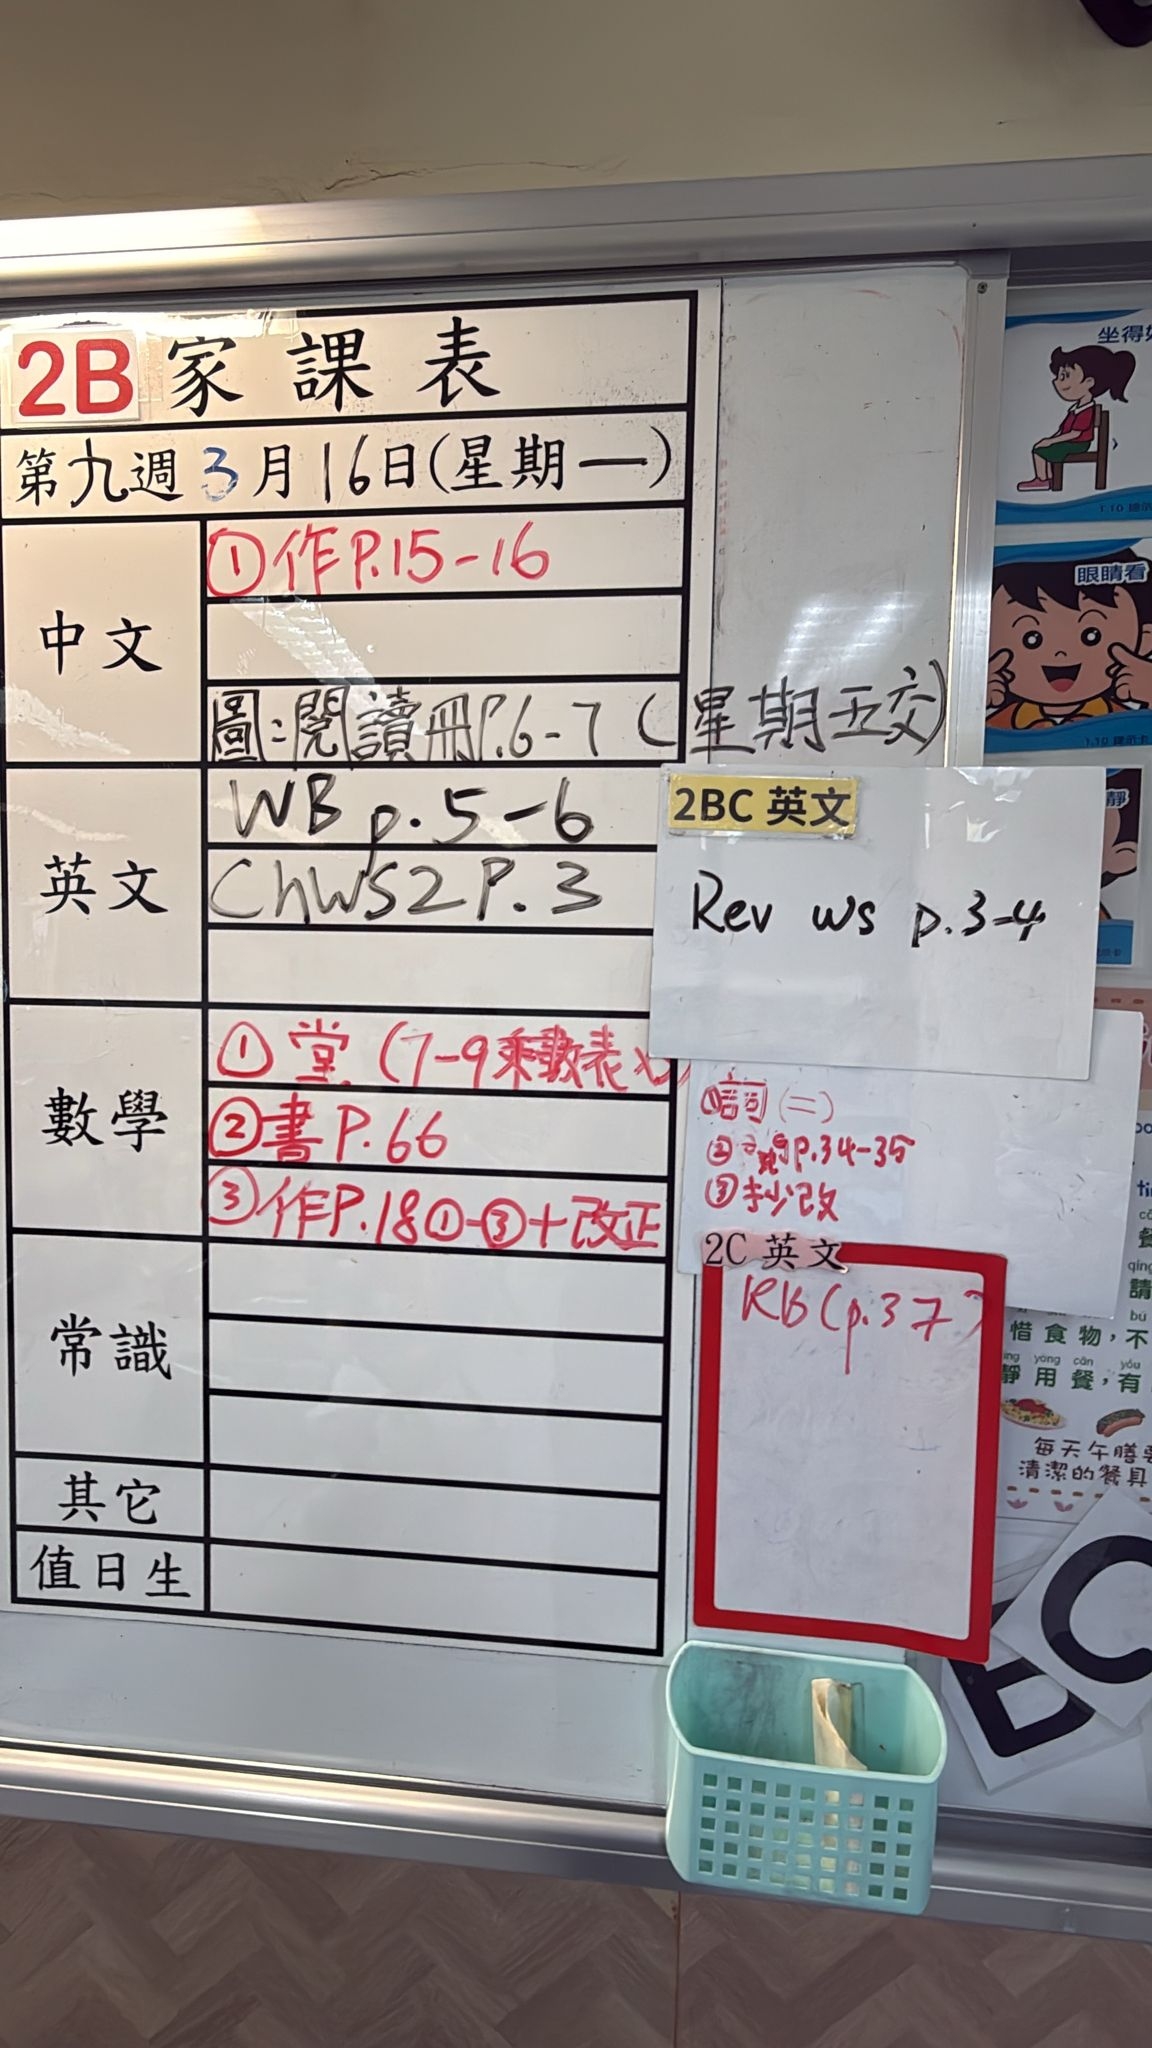 2B 家課表
第九週 3月16日(星期一)
中文
①作P.15-16
圖:閱讀冊P.6-7(星期五交)
英文
WB p.5-6
ChWS2 P.3
數學
①堂(7-9乘數表
②書P.66
③作P.18①-③+改正
常識
其它
值日生
2BC 英文
Rev ws p.3-4
①詞(二)
②P.34-35
③抄改
2C 英文
RB (p.37)
坐得
1.10 提示
眼睛看
1.10 提示卡
靜
惜食物,不
yòng cān yǒu
靜用餐,有
請
每天午膳要
清潔的餐具
C